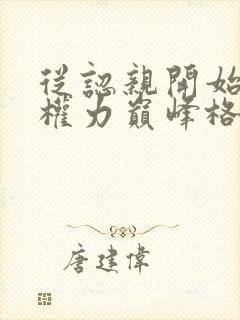 從認親開始
權力巔峰格
唐建偉